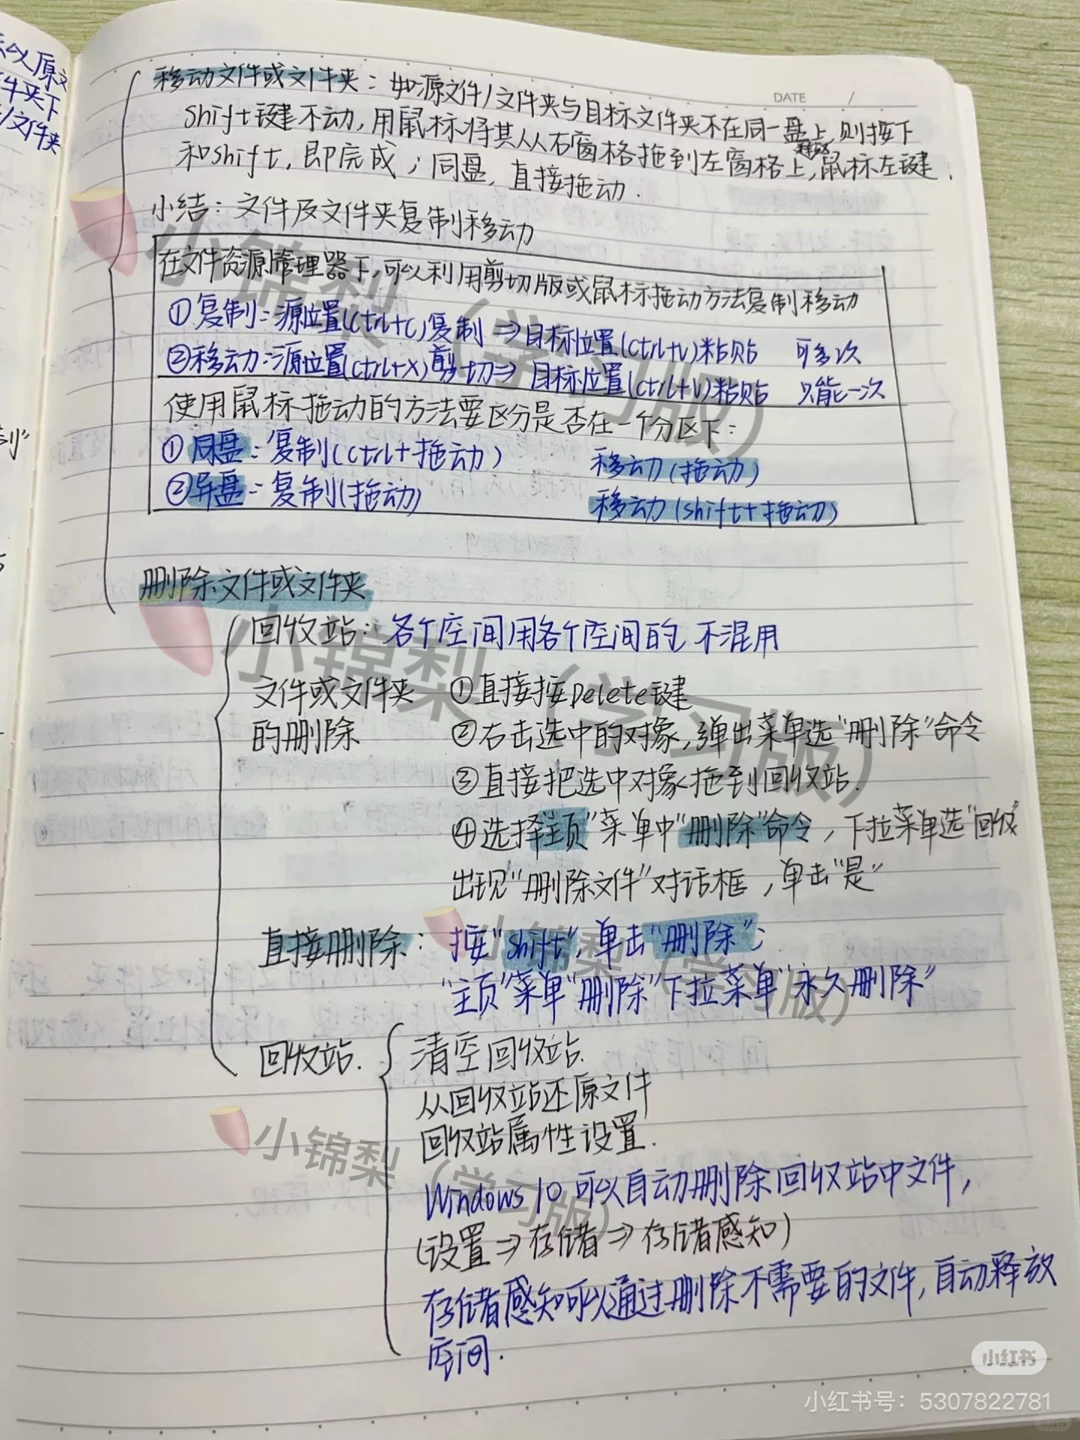 DATE /
移动文件或文件夹：如源文件/文件夹与目标文件夹不在同一盘上，则按下
Shift键不动，用鼠标将其从右窗格拖到左窗格上，鼠标左键
和shift，即完成；同盘，直接拖动.
小结：文件及文件夹复制移动
在文件资源管理器下，可以利用剪切版或鼠标拖动方法复制移动
①复制：源位置(Ctrl+C)复制⇒目标位置(Ctrl+V)粘贴 可多次
②移动：源位置(Ctrl+X)剪切⇒目标位置(Ctrl+V)粘贴 只能一次
使用鼠标拖动的方法要区分是否在一个分区下：
①同盘：复制(Ctrl+拖动) 移动(拖动)
②异盘：复制(拖动) 移动(shift+拖动)
删除文件或文件夹
回收站：各个空间用各个空间的，不混用
文件或文件夹 ①直接按Delete键
的删除 ②右击选中的对象，弹出菜单选“删除”命令
③直接把选中对象拖到回收站.
④选择主页”菜单中“删除”命令，下拉菜单选“回收”
出现“删除文件”对话框，单击“是”
直接删除：按“shift”，单击“删除”；
“主页”菜单“删除”下拉菜单“永久删除”
回收站. 清空回收站.
从回收站还原文件
回收站属性设置.
Windows 10可以自动删除回收站中文件，
(设置⇒存储⇒存储感知)
存储感知可以通过删除不需要的文件，自动释放
空间.
小锦梨（学习版）
小锦梨（学习版）
小锦梨（学习版）
小锦梨（学习版）
小红书
小红书号：5307822781